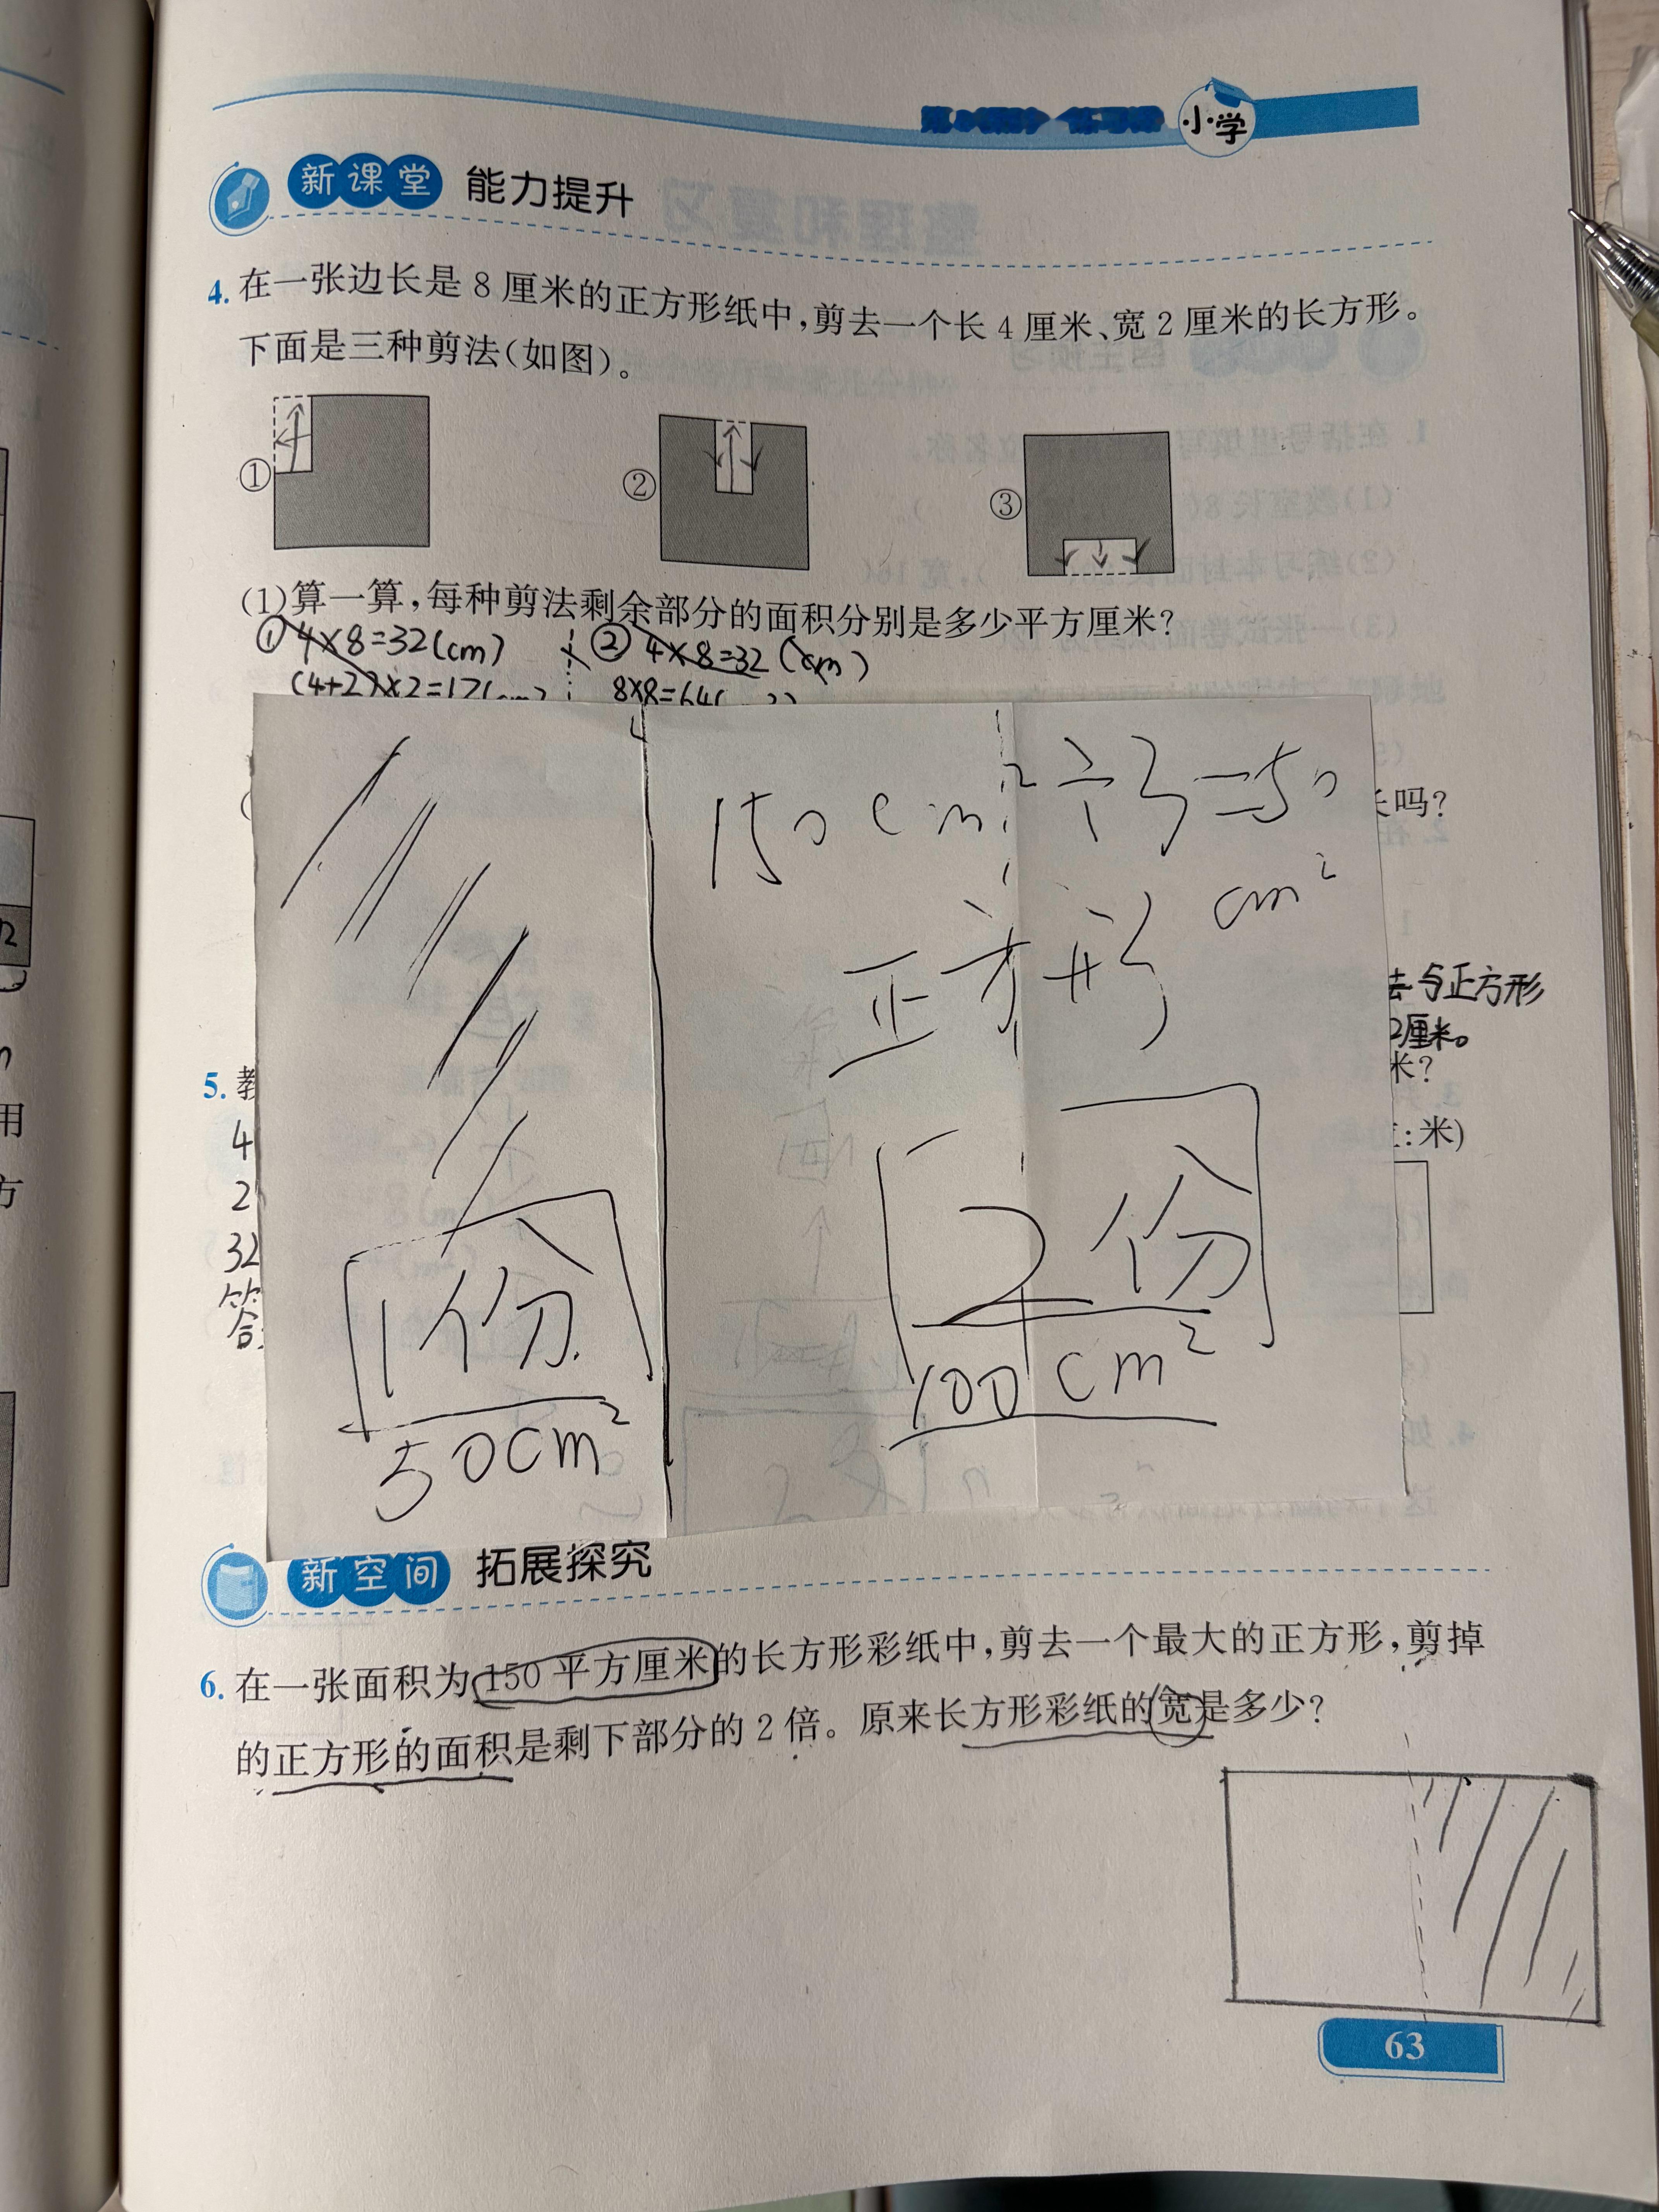 小学
新课堂 能力提升
4. 在一张边长是 8 厘米的正方形纸中,剪去一个长 4 厘米、宽 2 厘米的长方形。
下面是三种剪法(如图)。
① ② ③
(1)算一算,每种剪法剩余部分的面积分别是多少平方厘米?
① 4×8=32(cm) ② 4×8=32(cm)
(4+2)×2=12(cm) 8×8=64(
150cm²÷3=50
cm²
正方形
1份
50cm²
2份
100cm²
长吗?
去与正方形
2厘米。
米?
5. 教
:米)
4
2
32
答
新空间 拓展探究
6. 在一张面积为 150 平方厘米的长方形彩纸中,剪去一个最大的正方形,剪掉
的正方形的面积是剩下部分的 2 倍。原来长方形彩纸的宽是多少?
63
用
方